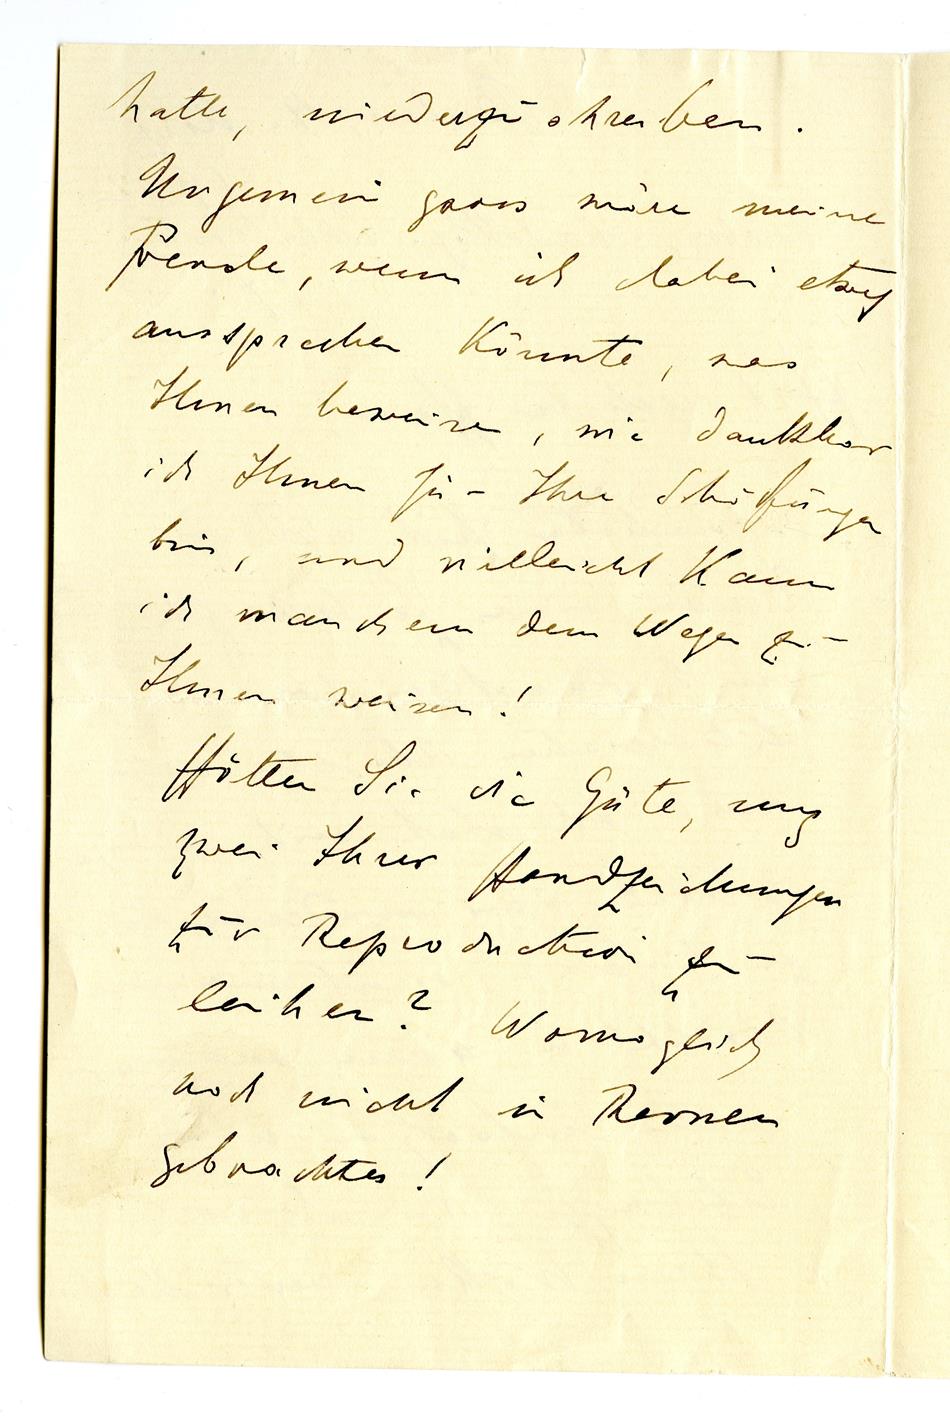 hatte, niederzuschreiben.
Ungemein gross wäre meine
Freude, wenn ich dabei etwas
aussprechen könnte, was
Ihnen beweisen, wie dankbar
ich Ihnen für Ihre Schöpfungen
bin, und villeicht kann
ich manchem den Wege zu
Ihnen weisen!
Hätten Sie die Güte, uns
zwei Ihrer Handzeichnungen
zur Reproduction zu
leihen? Womöglich
noch nicht in Revuen
gebrachtes!